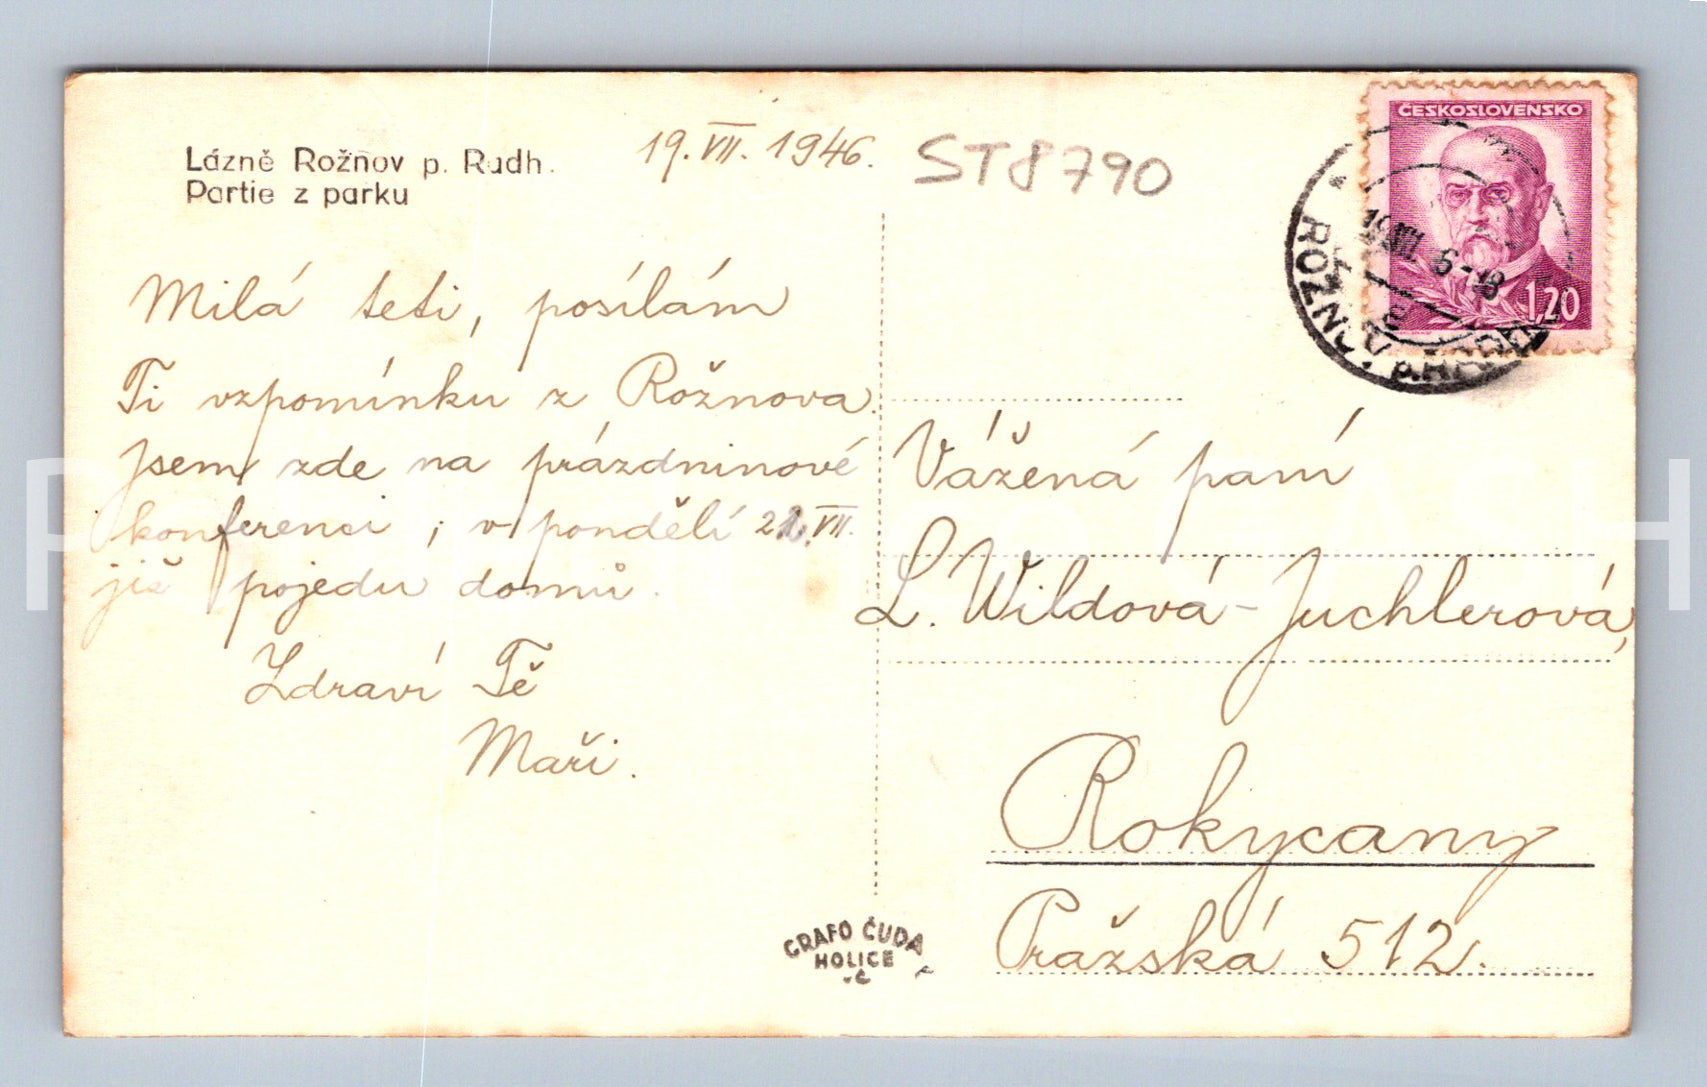 Lázně Rožňov p. Radh.
Partie z parku
19. VII. 1946.
ST8790
ČESKOSLOVENSKO
1,20
Milá teti, posílám
Ti vzpomínku z Rožnova.
Jsem zde na prázdninové
konferenci, v pondělí VII.
již pojedu domů.
Zdraví Tě
Maři.
Vážená paní
L. Wildová-Juchlerová,
Rokycany
Pražská 512.
GRAFO ČUDA
HOLICE